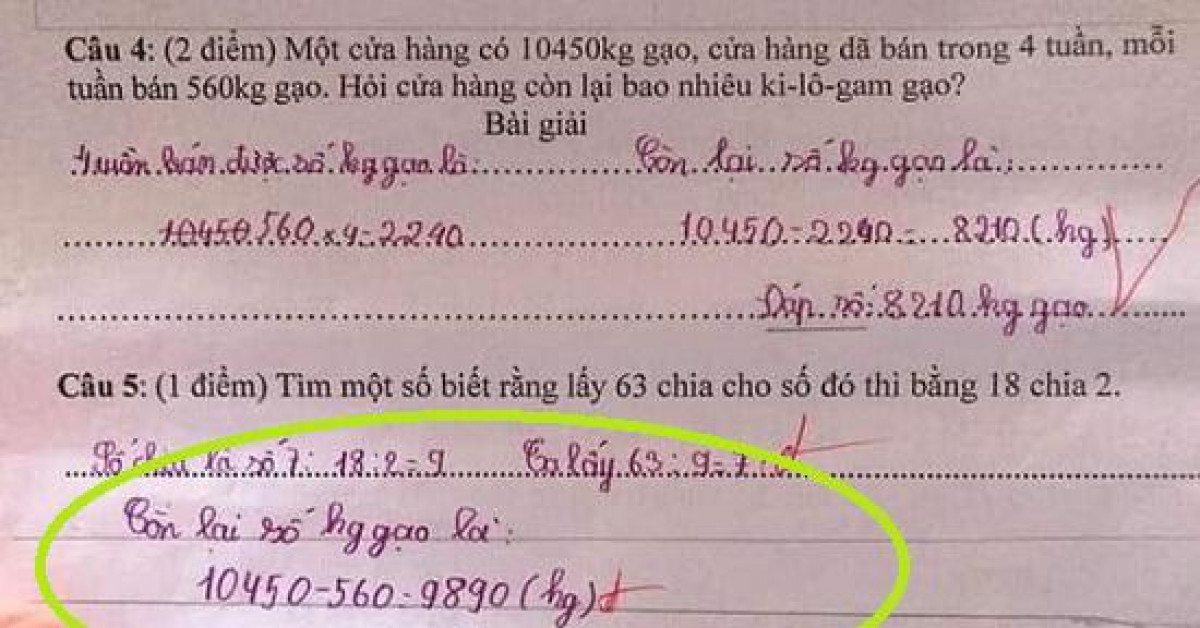 Câu 4: (2 điểm) Một cửa hàng có 10450kg gạo, cửa hàng đã bán trong 4 tuần, mỗi
tuần bán 560kg gạo. Hỏi cửa hàng còn lại bao nhiêu ki-lô-gam gạo?
Bài giải
4 tuần bán được số kg gạo là: Còn lại số kg gạo là:
10450 560 x 4 = 2240 10450 - 2240 = 8210 (kg)
Đáp số: 8210 kg gạo
Câu 5: (1 điểm) Tìm một số biết rằng lấy 63 chia cho số đó thì bằng 18 chia 2.
là số 7: 18 : 2 = 9 Ta lấy 63 : 9 = 7
Còn lại số kg gạo là:
10450 - 560 = 9890 (kg)